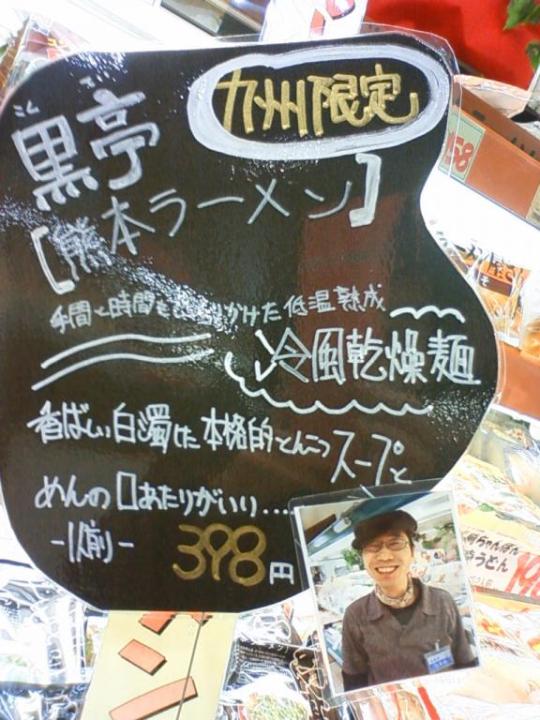 九州限定
こくてい
黒亭
[熊本ラーメン]
手間と時間をじっくりかけた低温熟成
冷風乾燥麺
香ばしい白濁した本格的とんこつスープと
めんの口あたりがいい...
-1人前-
398円
158